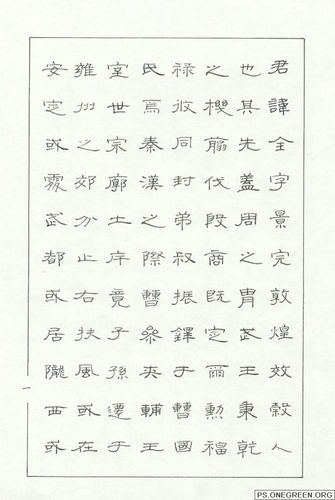 君諱全字景完敦煌效穀人
也其先蓋周之胄武王秉乾
之機翦伐殷商既定爾勳福
祿攸同封弟叔振鐸于曹國
氏焉秦漢之際曹參夾輔王
室世宗廓土斥竟子孫遷于
雍州之郊分止右扶風或在
安定或處武都或居隴西或
一
PS.ONEGREEN.ORG